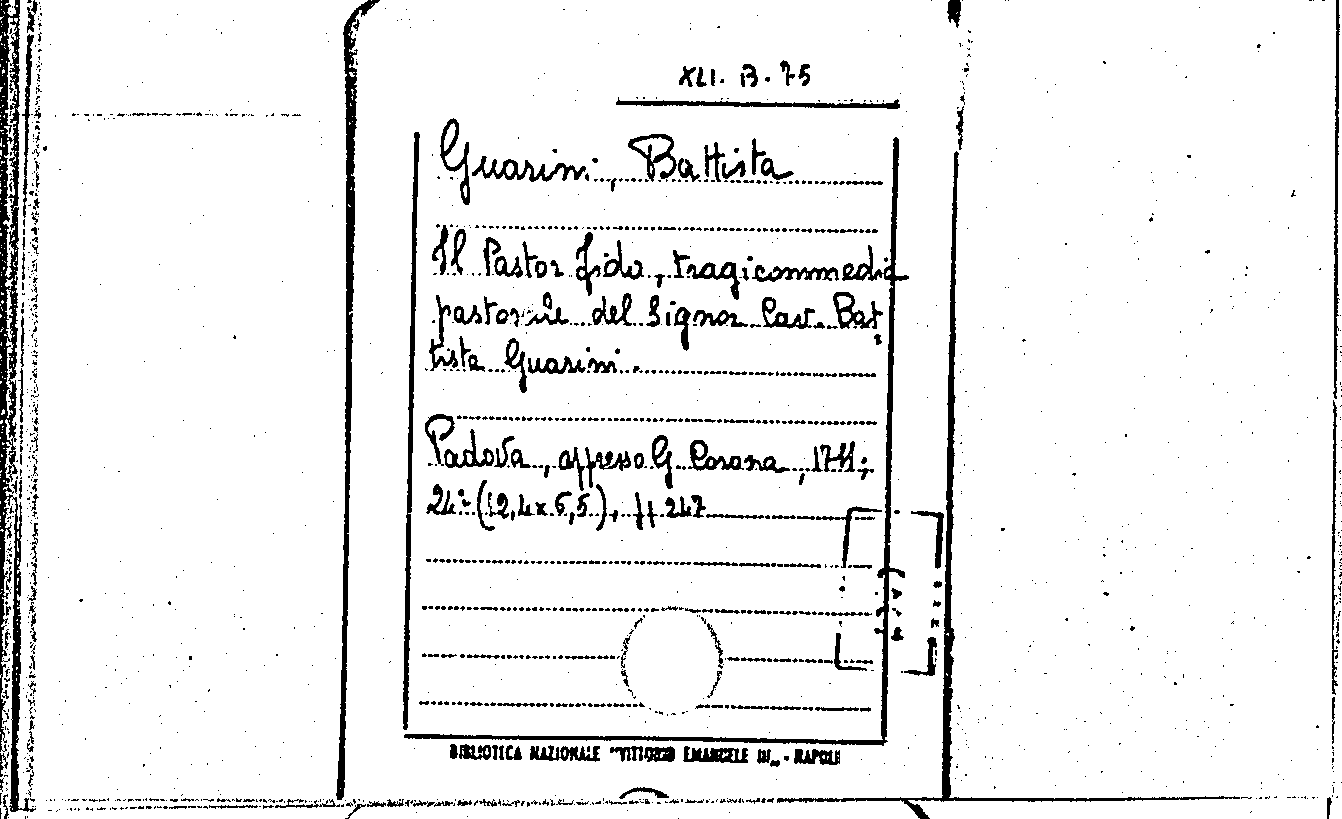 XLI. B. 75
Guarini, Battista
Il Pastor fido, tragicommedia
pastorale del Signor Cav. Bat
tista Guarini.
Padova, appresso G. Corona, 1711;
24° (12,4 x 6,5), ff 247
BIBLIOTECA NAZIONALE "VITTORIO EMANUELE III" - NAPOLI